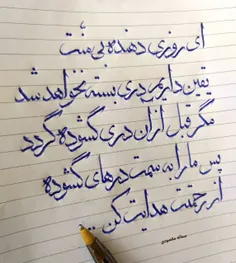 ای روزی دهنده بی منت
یقین داریم دری بسته نخواهد شد
مگر قبل از آن دری گشوده گردد
پس ما را به سمت درهای گشوده
از رحمتت هدایت کن ...